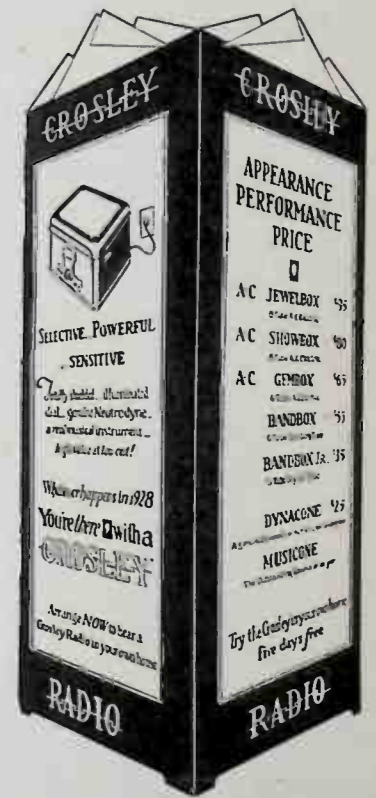 CROSLEY
SELECTIVE POWERFUL
SENSITIVE
Totally shielded illuminated
dial genuine Neutrodyne
a real musical instrument
Whatever happens in 1928
You're there with a
CROSLEY
Arrange NOW to hear a
Crosley Radio in your own home
RADIO
CROSLEY
APPEARANCE
PERFORMANCE
PRICE
AC JEWELBOX $95
AC SHOWBOX $80
AC GEMBOX $65
BANDBOX $55
BANDBOX Jr. $35
DYNACONE $25
MUSICONE
Try the Crosley in your own home
five days free
RADIO